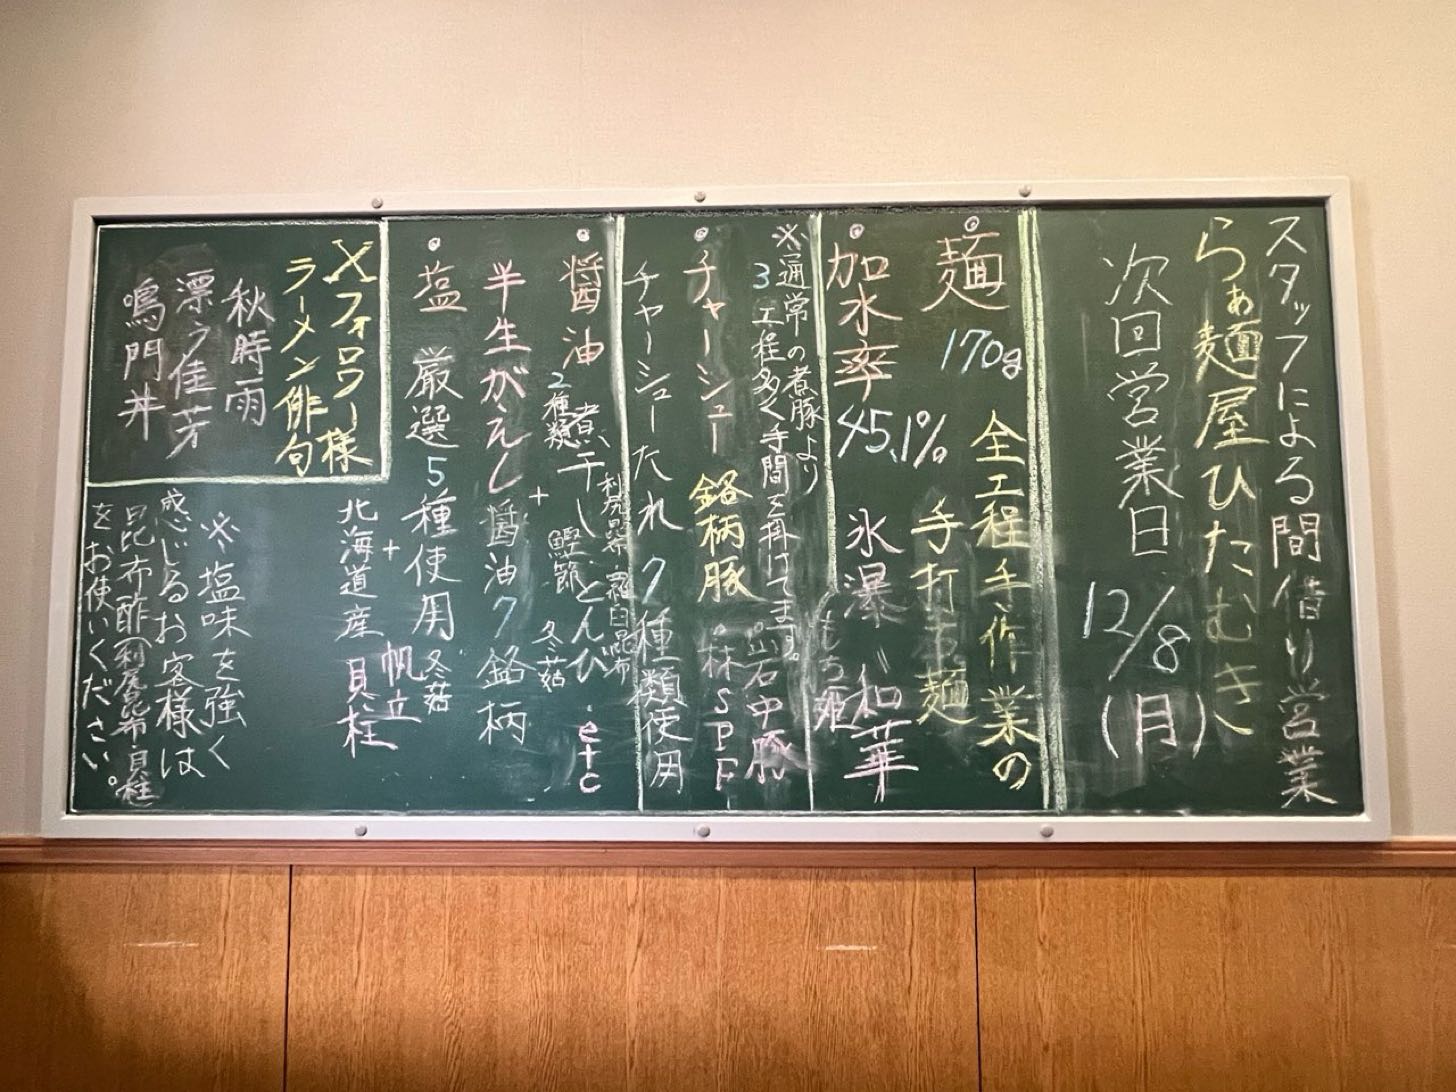 スタッフによる間借り営業
らぁ麺屋ひたむき
次回営業日
12/8(月)
◎麺 170g
全工程手作業の
手打ち麺
◎加水率 45.1%
氷瀑 和華
もち姫
※通常の煮豚より
3工程多く手間を掛けてます。
◎チャーシュー 銘柄豚
岩中豚
林SPF
チャーシューたれ 7種類使用
◎醤油 2種類 煮干し とんび etc
利尻昆布・羅臼昆布
+ 鰹節 冬菇
半生がえし 醤油7銘柄
◎塩 厳選5種使用
+ 冬菇
帆立
北海道産 貝柱
Xフォロワー様
ラーメン俳句
秋時雨
漂う佳芳
鳴門丼
※塩味を強く
感じるお客様は
昆布酢(利尻昆布・貝柱
をお使いください。